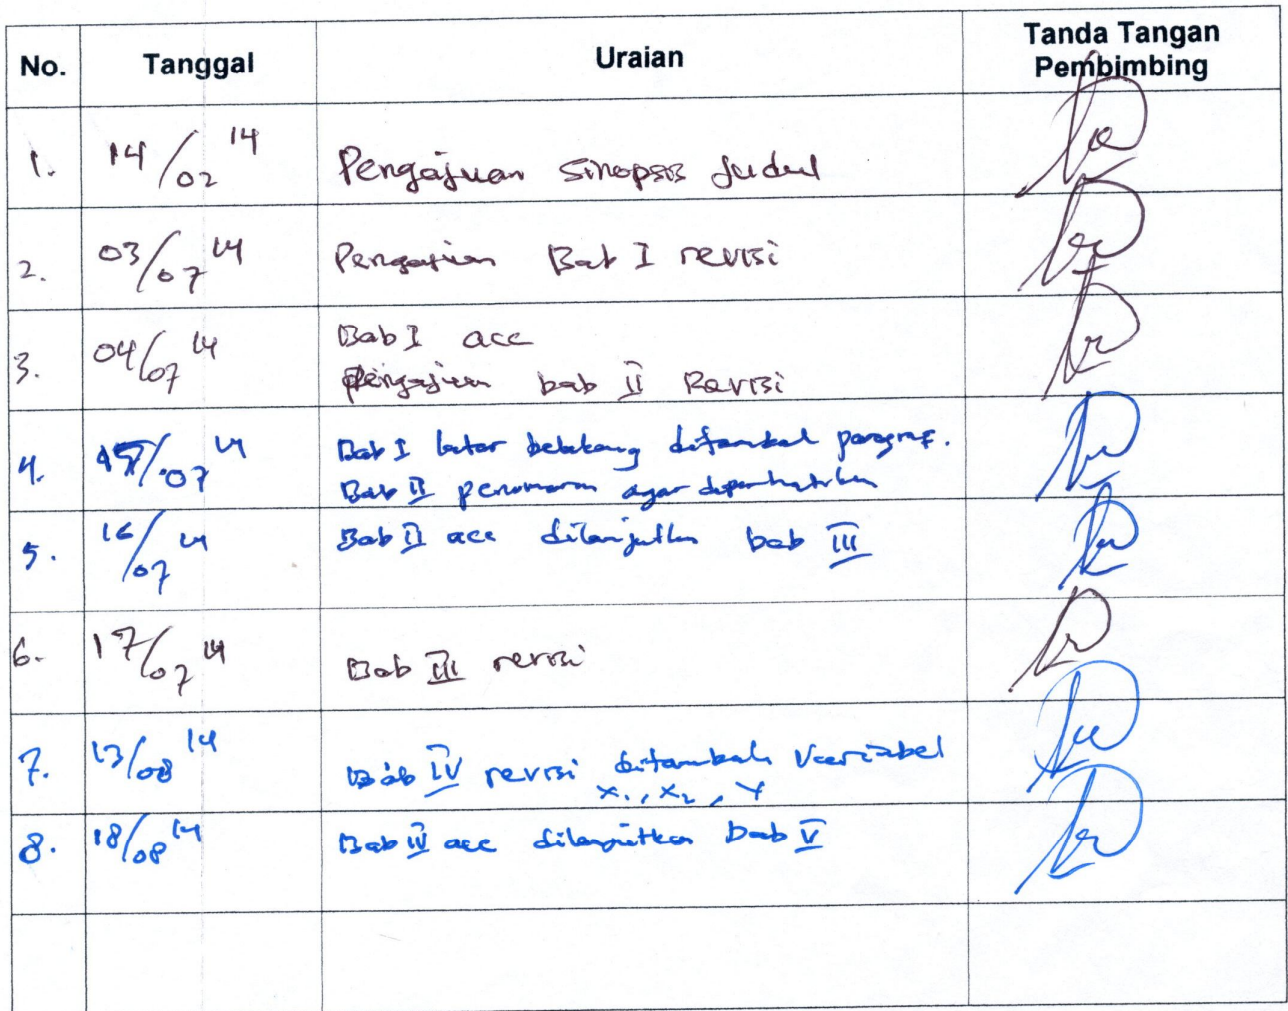 No. Tanggal Uraian Tanda Tangan
Pembimbing
1. 14/02 14 Pengajuan sinopsis Judul
2. 03/07 14 Pengajuan Bab I revisi
3. 04/07 14 Bab I acc
Pengajuan bab II Revisi
4. 15/07 14 Bab I latar belakang ditambah paragraf.
Bab II penomoran agar diperhatikan
5. 16/07 14 Bab II acc dilanjutkan bab III
6. 17/07 14 Bab III revisi
7. 13/08 14 Bab IV revisi ditambah Variabel
X1, X2, Y
8. 18/08 14 Bab IV acc dilanjutkan bab V